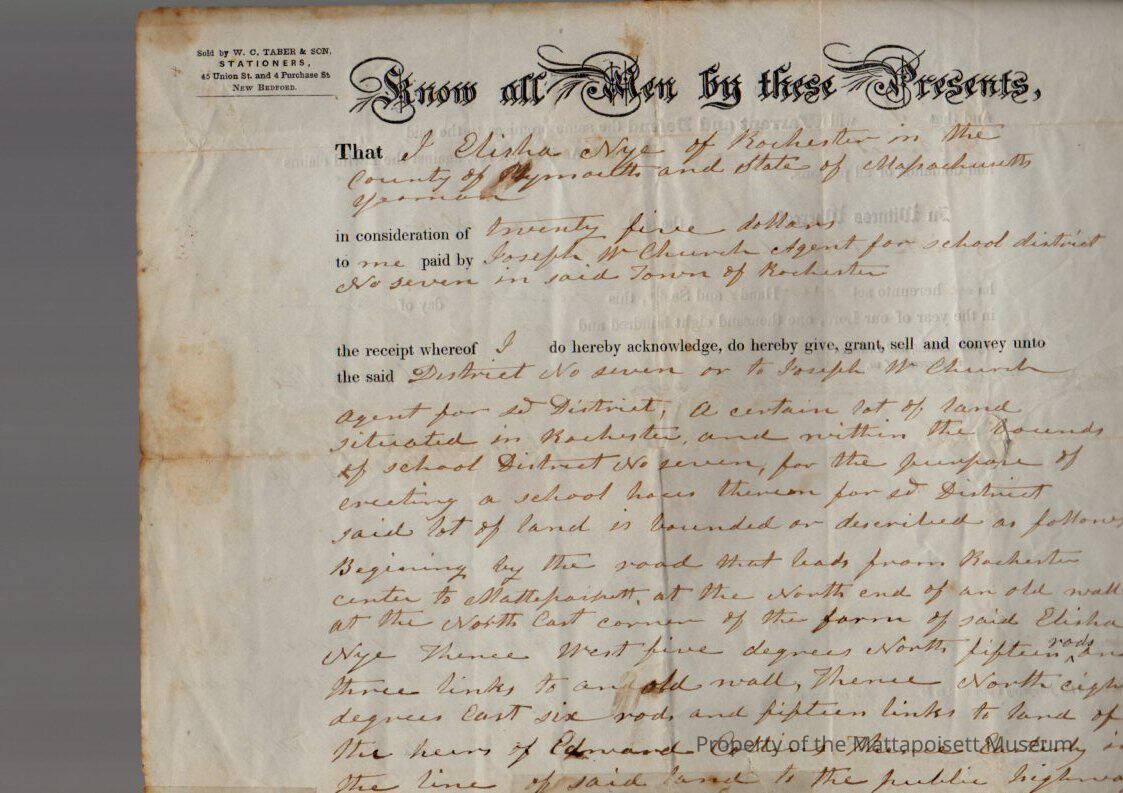 Sold by W. C. TABER & SON,
STATIONERS,
45 Union St. and 4 Purchase St
NEW BEDFORD.
Know all Men by these Presents,
That I Elisha Nye of Rochester in the
County of Plymouth and State of Massachusetts
Yeoman
in consideration of twenty five dollars
to me paid by Joseph W Church Agent for school district
No seven in said Town of Rochester
the receipt whereof I do hereby acknowledge, do hereby give, grant, sell and convey unto
the said District No seven or to Joseph W Church
Agent for sd District, A certain lot of land
situated in Rochester, and within the bounds
of school District No seven, for the purpose of
erecting a school hous thereon for sd District
said lot of land is bounded or described as follows
Begining by the road that leads from Rochester
center to Mattepoisett, at the North end of an old wall
at the North East corner of the farm of said Elisha
Nye Thence West five degrees North fifteen rods
three links to an old wall, Thence North eigh
degrees East six rods and fifteen links to land of
the heirs of Edward Thence Easterly in
the line of said land to the public highwa
Property of the Mattapoisett Museum